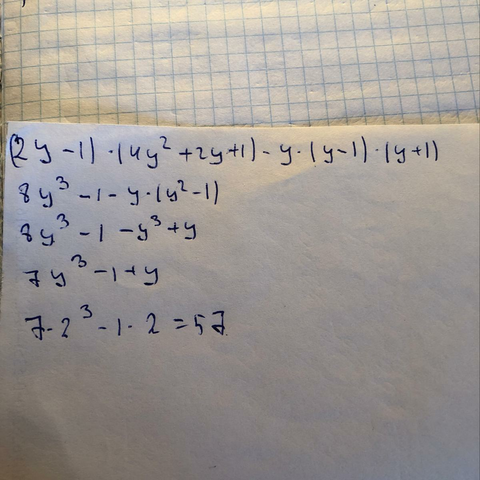 (2y-1)·(4y²+2y+1)-y·(y-1)·(y+1)
8y³-1-y·(y²-1)
8y³-1-y³+y
7y³-1+y
7·2³-1·2=57